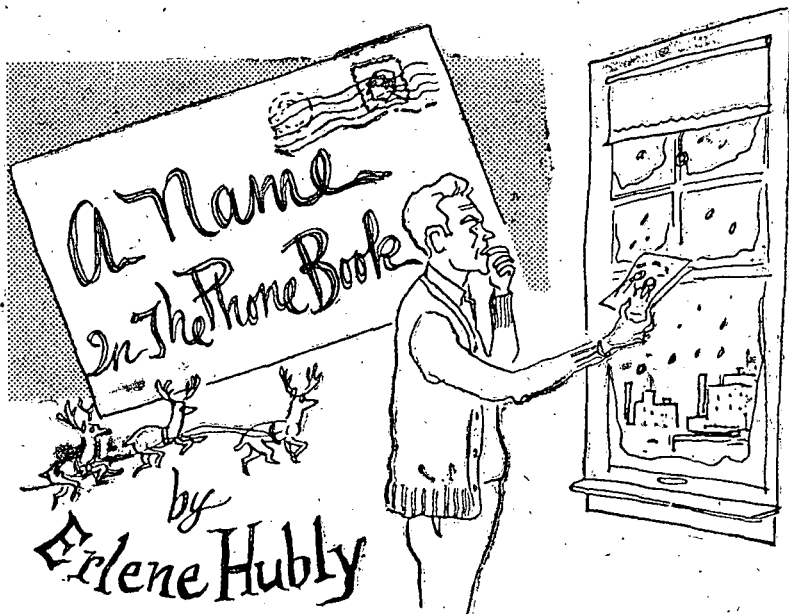 A Name
In The Phone Book
by
Erlene Hubly